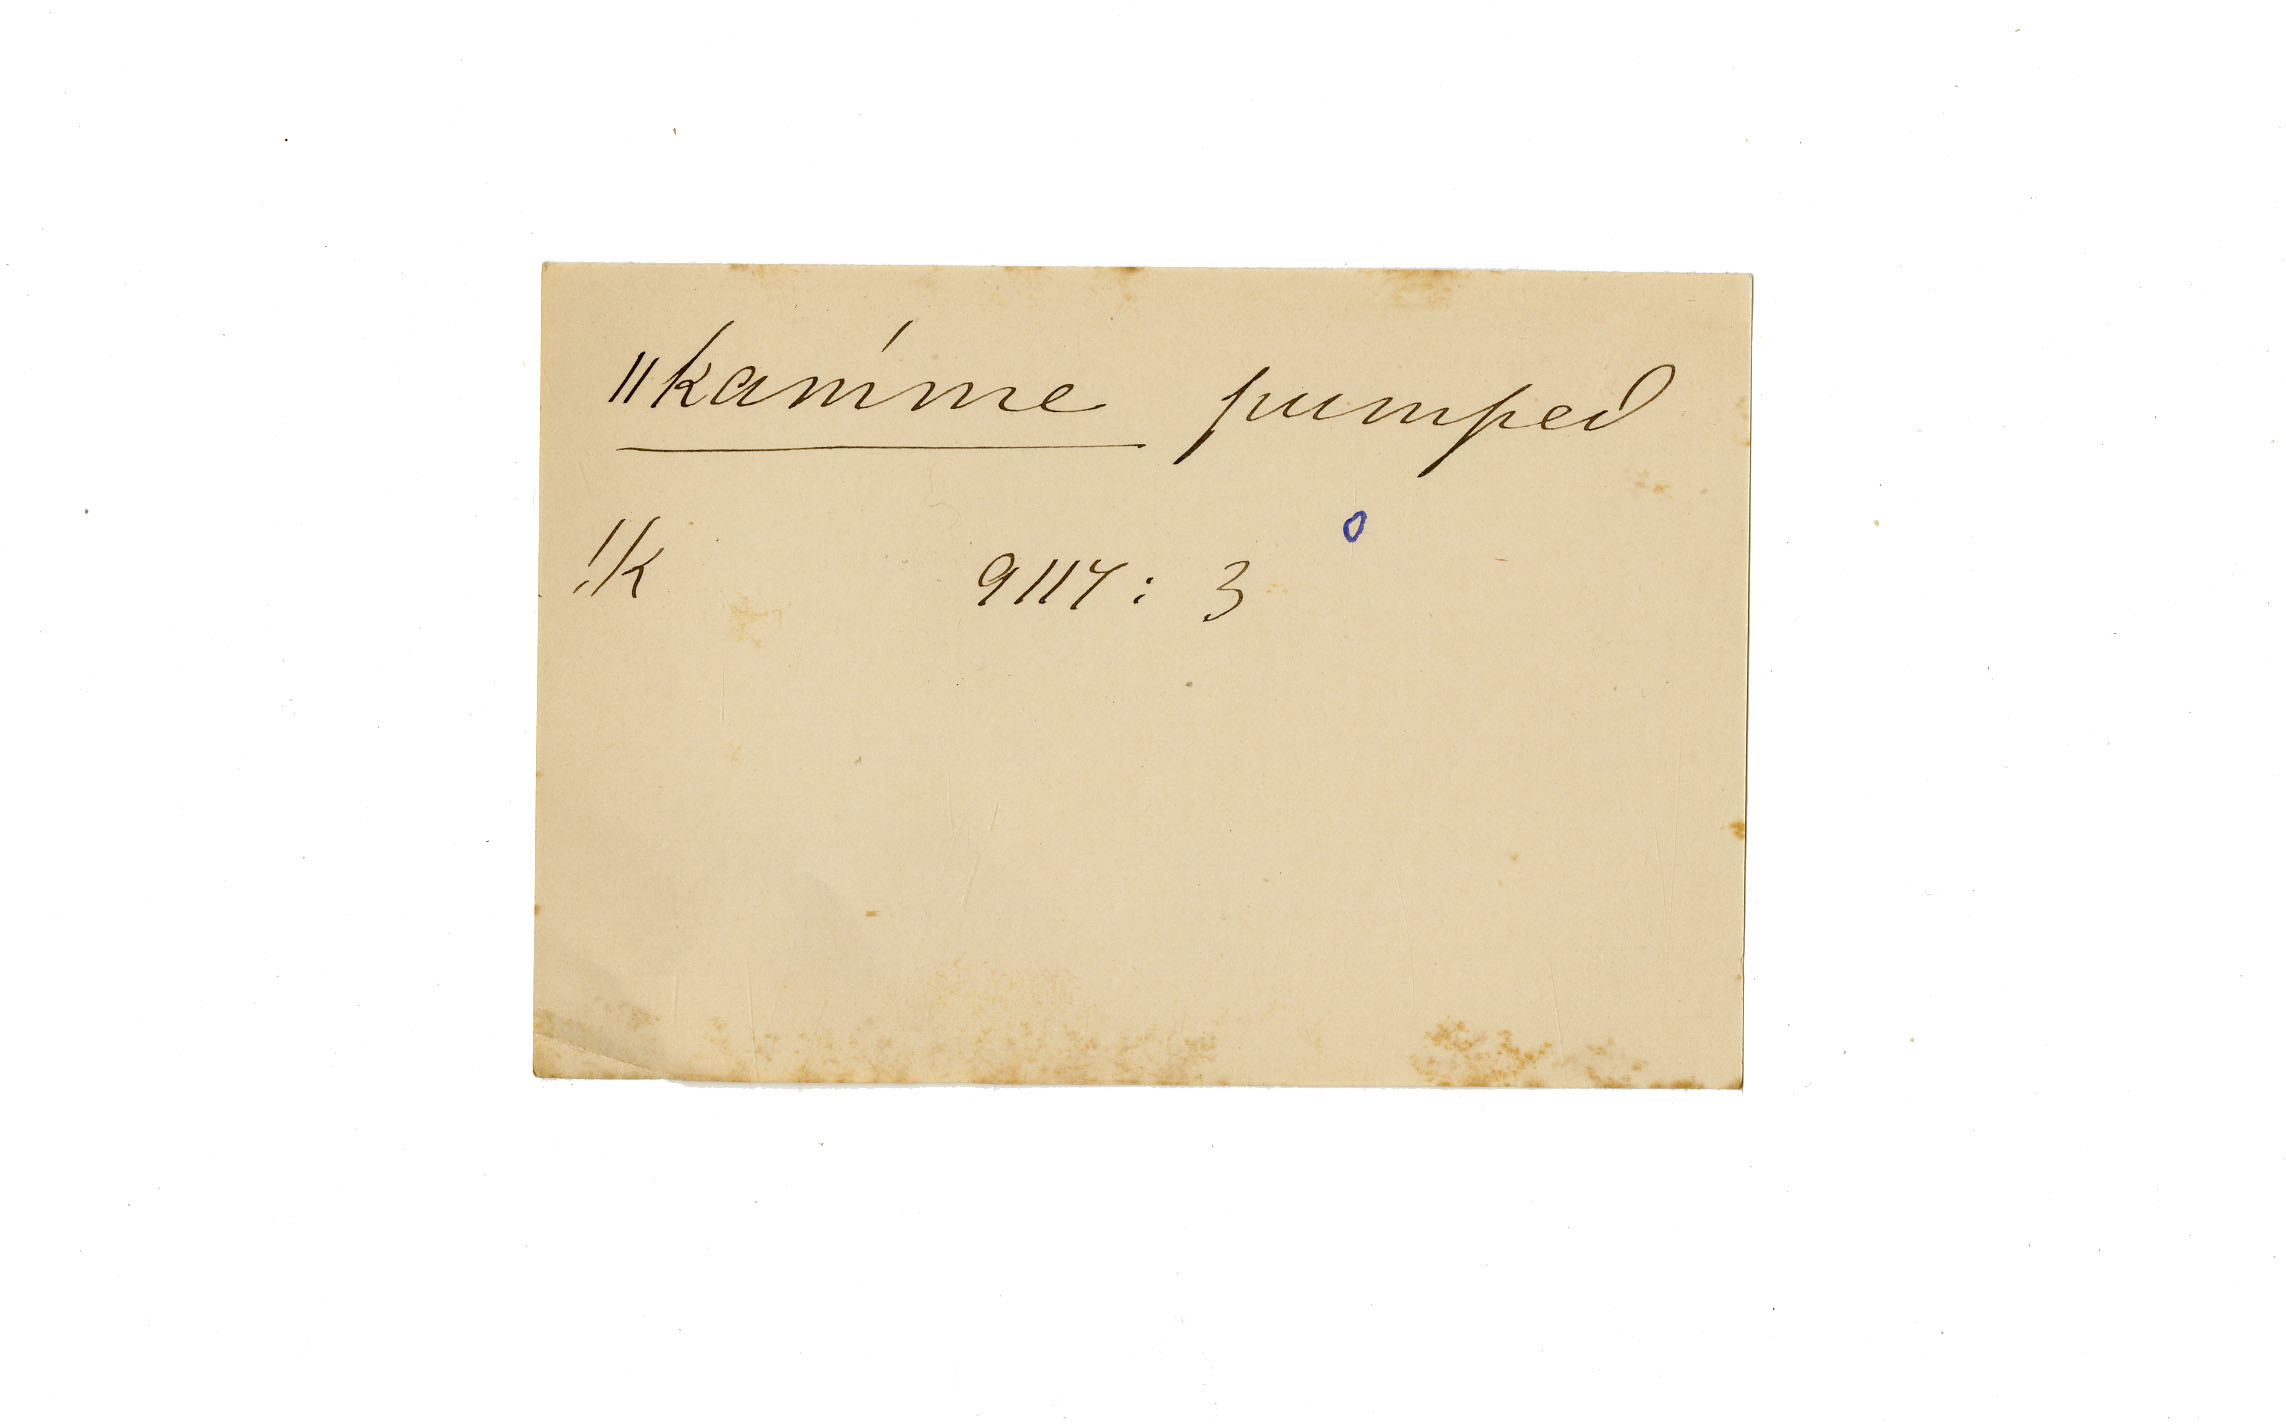 ǁkam'me pumped
!k 9117 : 3